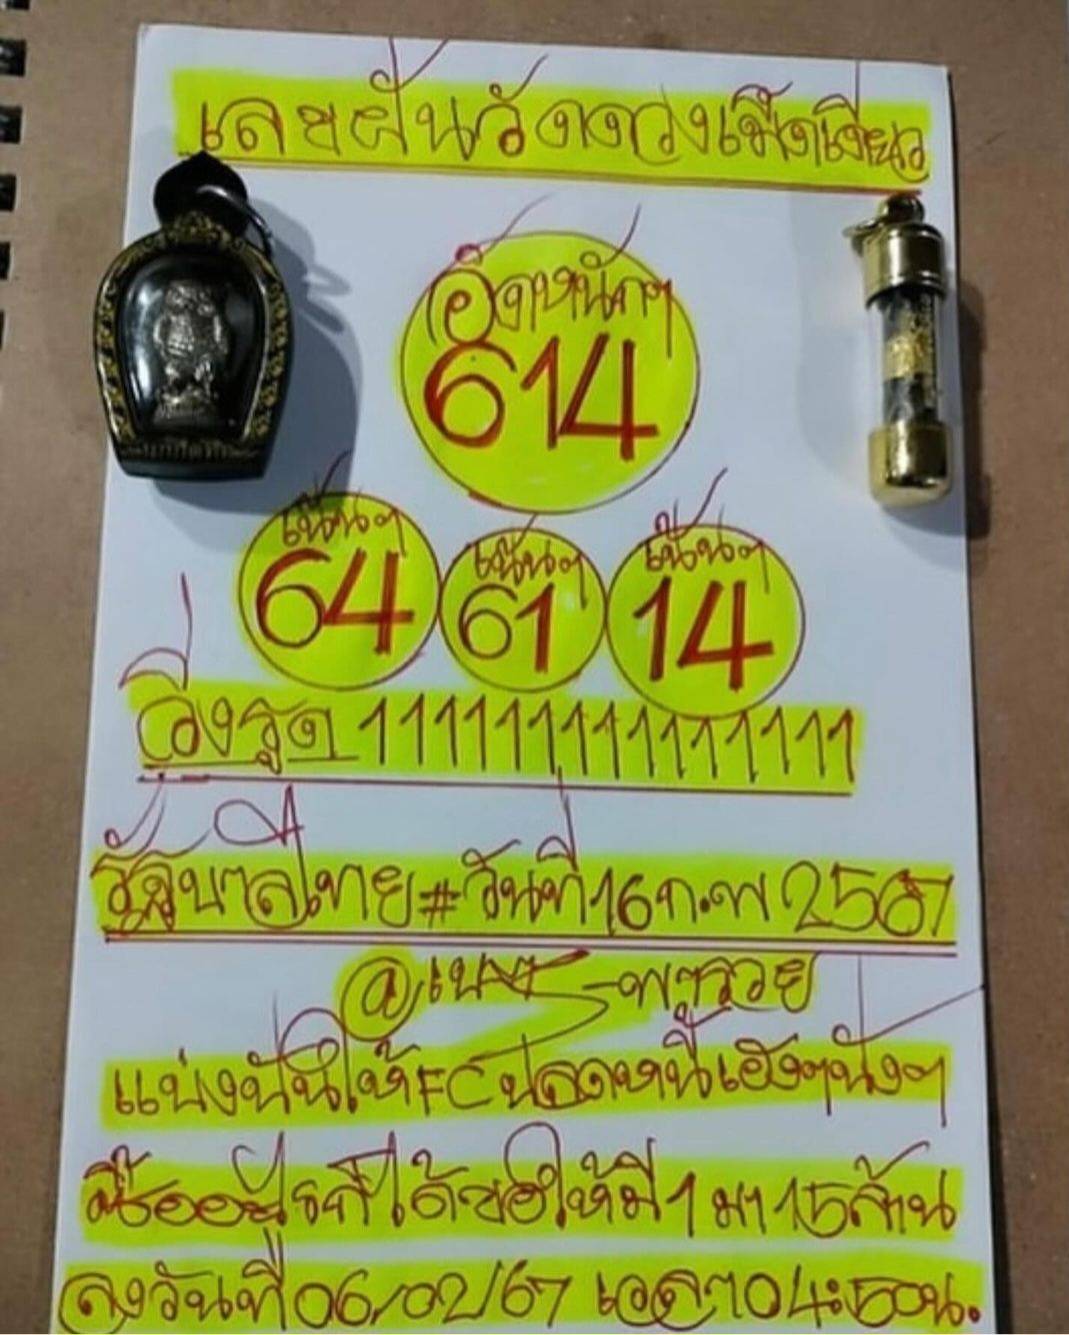 เลขฝันวัดดวงเม็ดเงียว
อัดหนักๆ
614
เน้นๆ เน้นๆ เน้นๆ
64 61 14
วิ่งรูด 111111111111111
รัฐบาลไทย#วันที่16ก.พ 2567
แบ่งปันให้FCปลดหนี้เฮงๆปังๆ
ซื้ออะไรก็ได้ขอให้มี1มา15ล้าน
ลงวันที่06/02/67 เวลา04:50น.